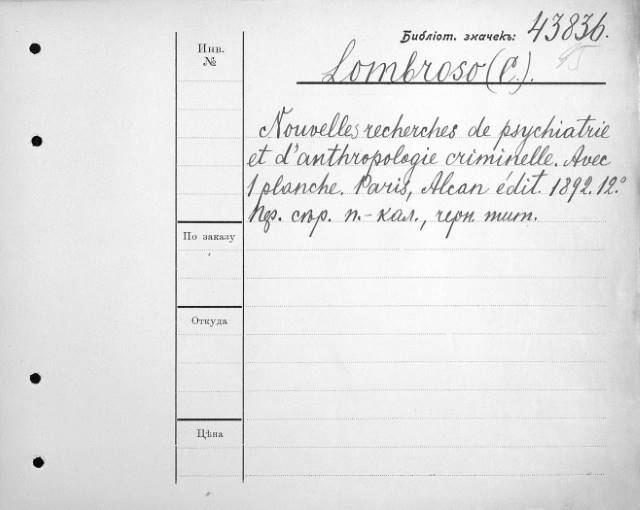 Библіот. значекъ: 43836.
Lombroso (C.).
Инв.
№
Nouvelles recherches de psychiatrie
et d'anthropologie criminelle. Avec
1 planche. Paris, Alcan édit. 1892. 12.°
сѣр. п.-кал., черн. тит.
По заказу
Откуда
Цѣна